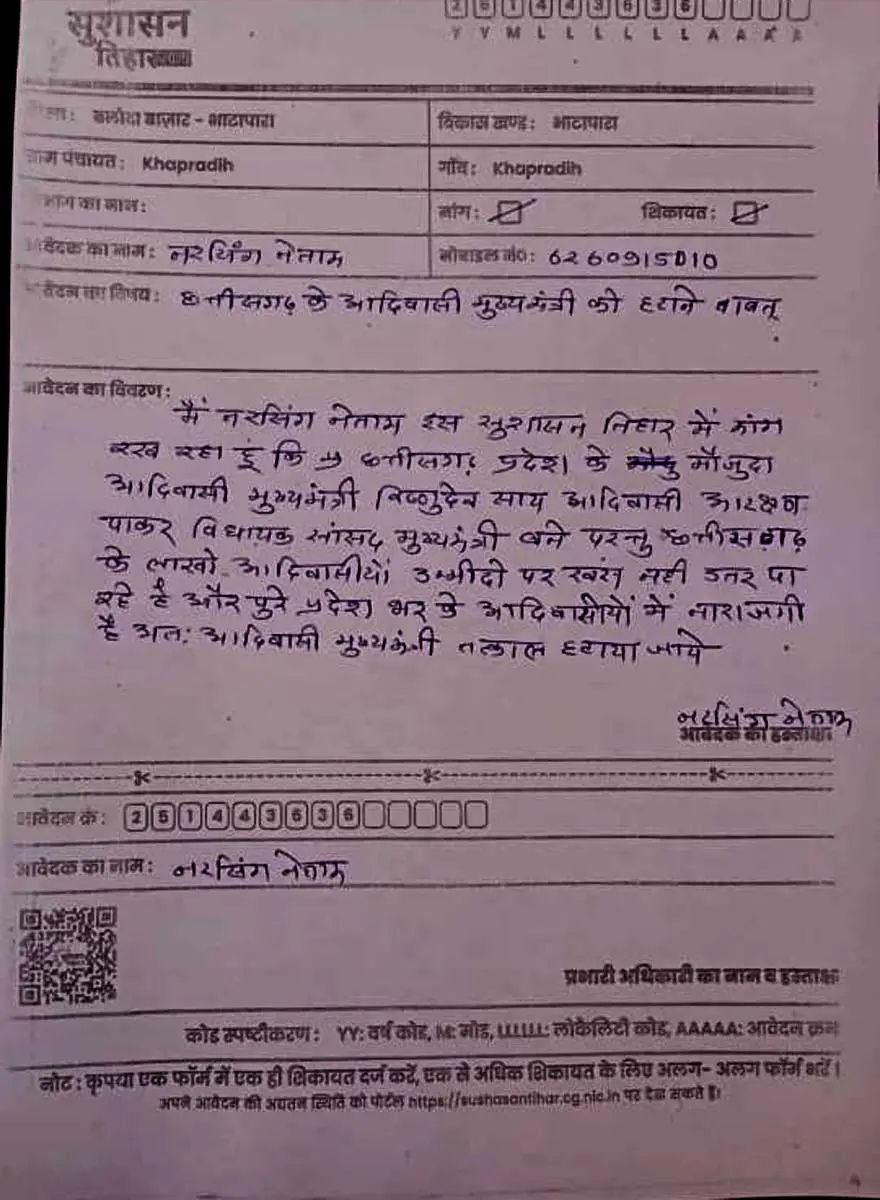 सुशासन
तिहार
2 5 1 4 4 3 6 3 6
Y Y M L L L L L L A A A A
बलौदा बाज़ार - भाटापारा
विकास खण्ड: भाटापारा
ग्राम पंचायत: Khapradih
गाँव: Khapradih
विभाग का नाम:
मांग:
शिकायत:
आवेदक का नाम: नरसिंग नेताम
मोबाइल नं०: 6260915010
आवेदन का विषय: छत्तीसगढ़ के आदिवासी मुख्यमंत्री को हटाने बाबत्
आवेदन का विवरण:
मैं नरसिंग नेताम इस सुशासन तिहार में मांग
रख रहा हूं कि छत्तीसगढ़ प्रदेश के मौजुदा
आदिवासी मुख्यमंत्री विष्णुदेव साय आदिवासी आरक्षण
पाकर विधायक सांसद मुख्यमंत्री बने परन्तु छत्तीसगढ़
के लाखो आदिवासीयों उम्मीदो पर स्वंय नही उतर पा
रहे है और पुरे प्रदेश भर के आदिवासीयों में नाराजगी
है अत: आदिवासी मुख्यमंत्री तत्काल हटाया जाये
नरसिंग नेताम
आवेदक का हस्ताक्षर
आवेदन क्रं: 2 5 1 4 4 3 6 3 6
आवेदक का नाम: नरसिंग नेताम
प्रभारी अधिकारी का नाम व हस्ताक्षर
कोड स्पष्टीकरण: YY: वर्ष कोड, M: मोड, LLLLLL: लोकैलिटी कोड, AAAAA: आवेदन क्रम
नोट : कृपया एक फॉर्म में एक ही शिकायत दर्ज करें, एक से अधिक शिकायत के लिए अलग- अलग फॉर्म भरें।
अपने आवेदन की अद्यतन स्थिति को पोर्टल https://sushasantihar.cg.nic.in पर देख सकते हैं।